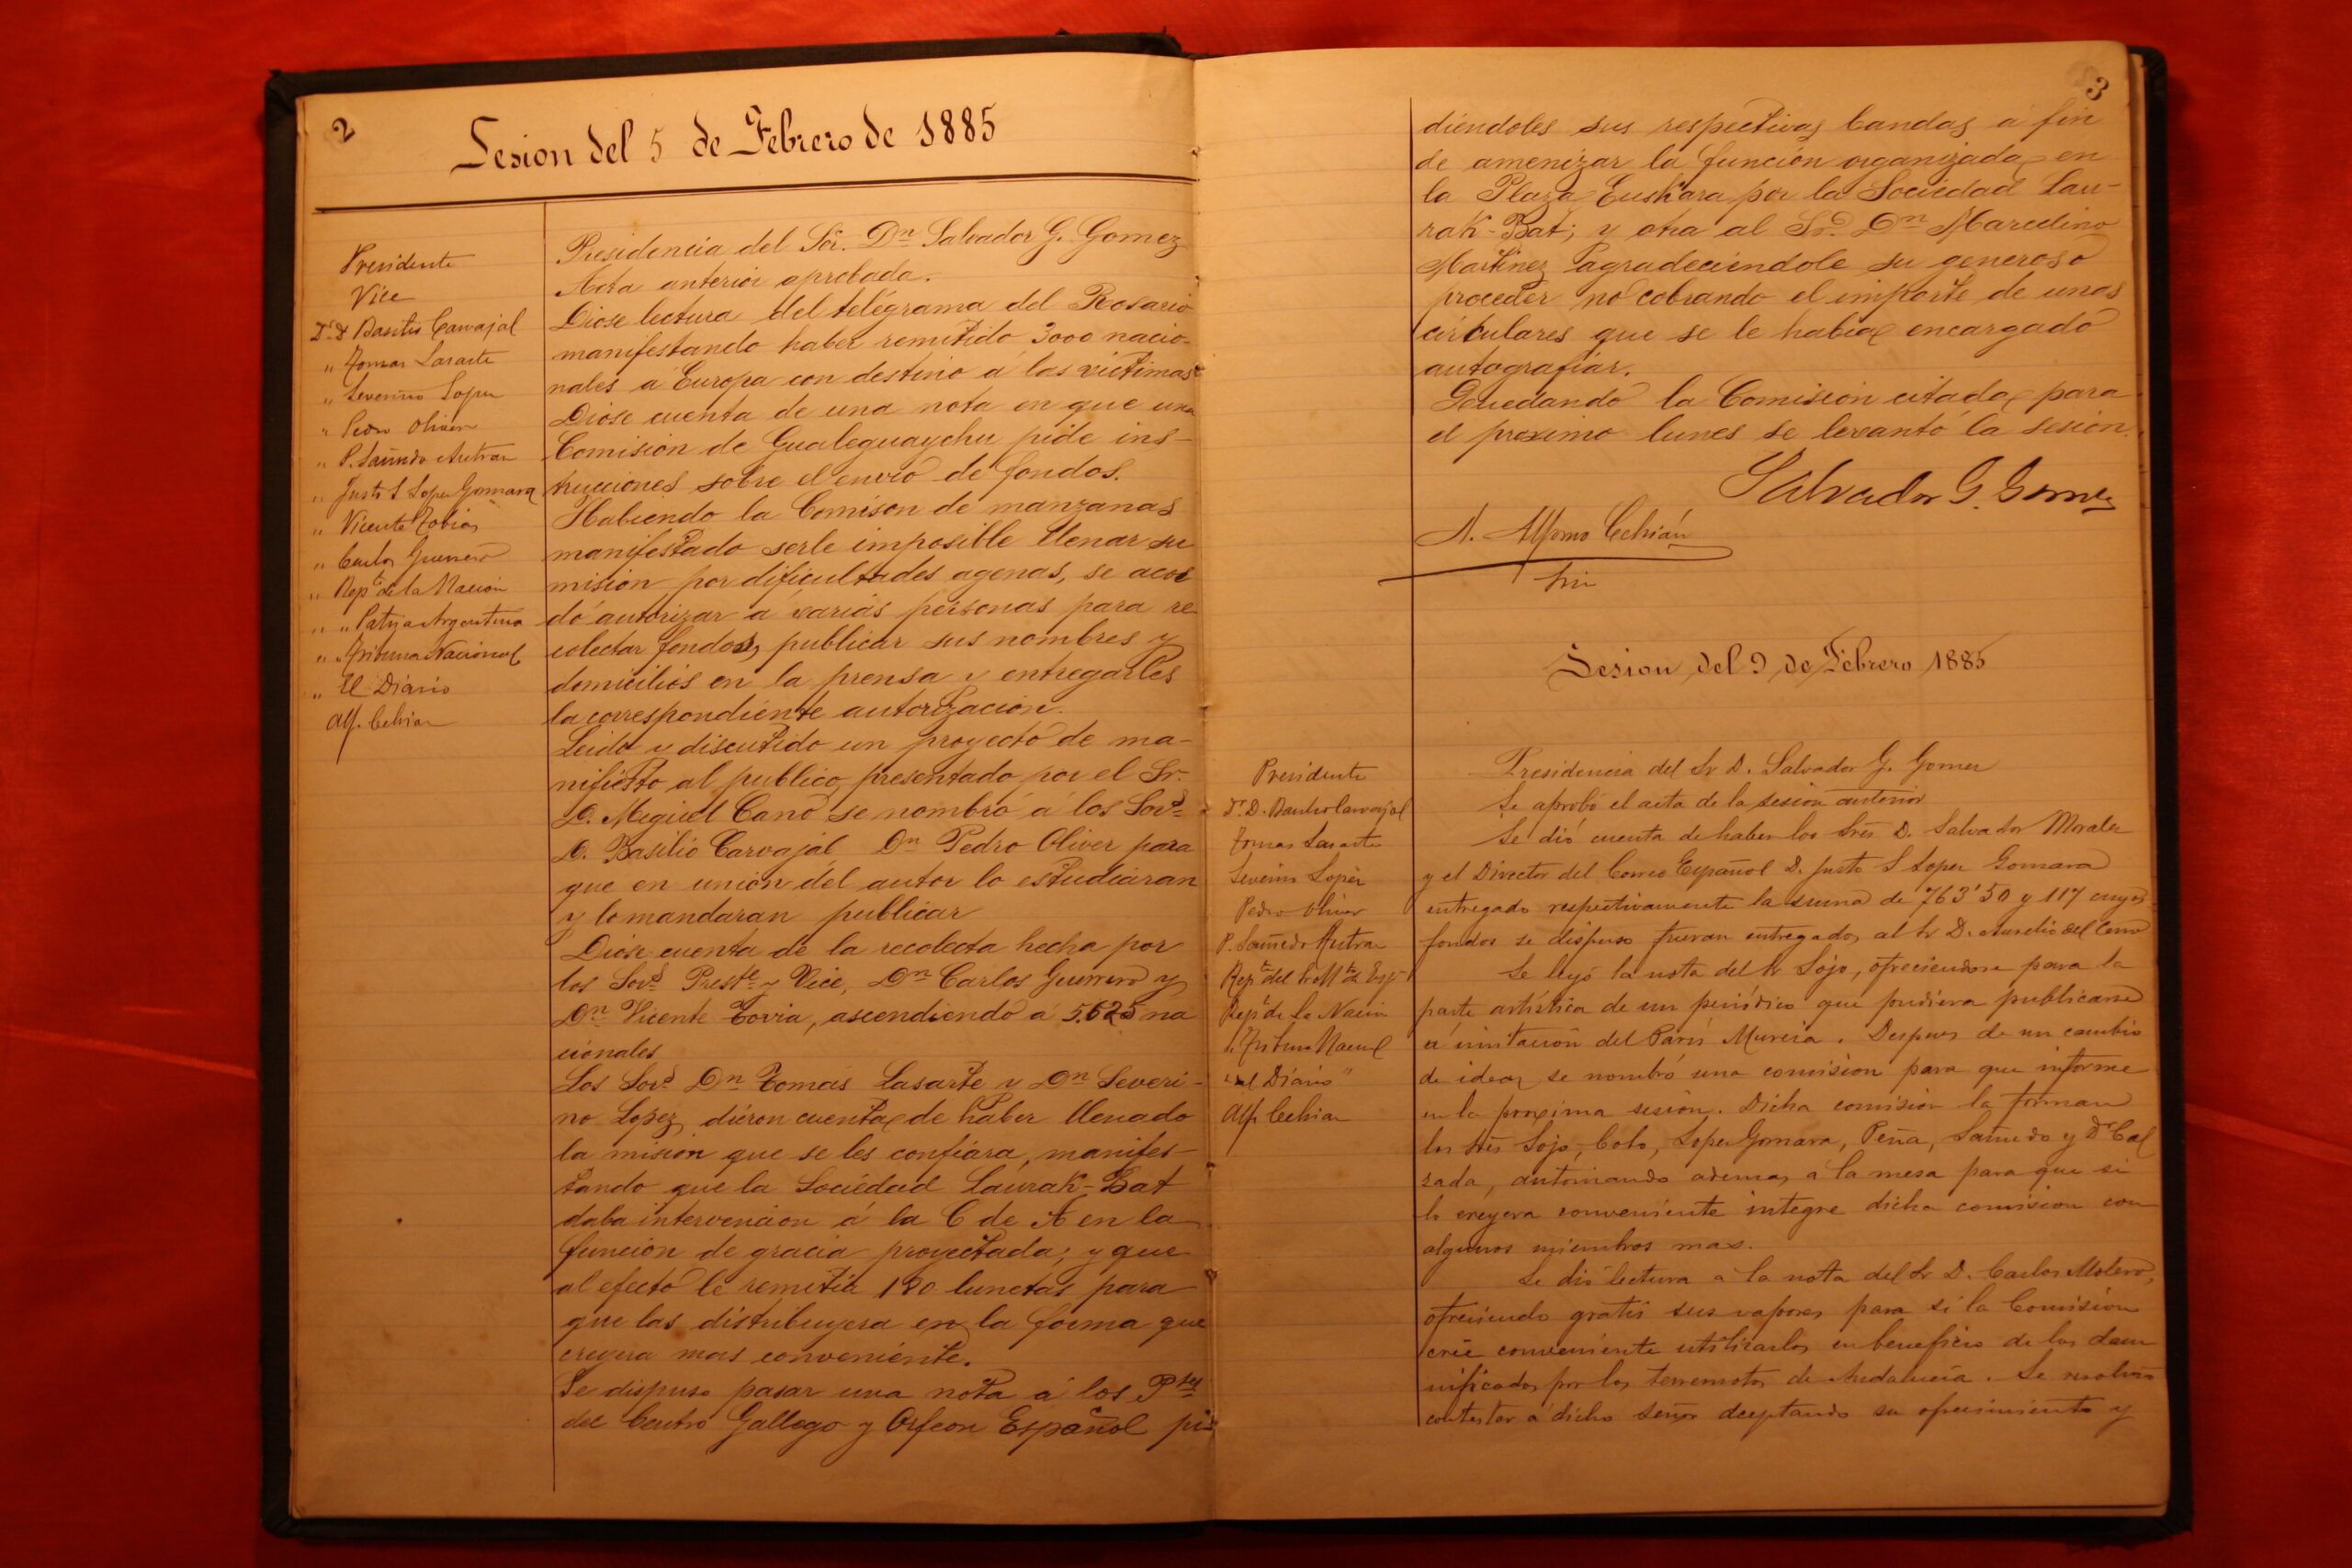 2
Sesion del 5 de Febrero de 1885
Presidente
Vice
Dr. D Basilio Carvajal
" Tomas Lasarte
" Severino Lopez
" Pedro Oliver
" P. Sañudo Autran
" Justo S Lopez Gomara
" Vicente Tobia
" Carlos Guerrero
" Repte de la Nacion
" " Patria Argentina
" " Tribuna Nacional
" El Diario
Alf. Cebrian
Presidencia del Sor. Dn Salvador G. Gomez
Acta anterior aprobada.
Diose lectura del telégrama del Rosario
manifestando haber remitido 3000 nacio-
nales a Europa con destino á las victimas
Diose cuenta de una nota en que una
Comisión de Gualeguaychu pide ins-
trucciones sobre el envio de fondos.
Habiendo la Comison de manzanas
manifestado serle imposible llenar su
misión por dificultades agenas, se acor
dó autorizar a varias personas para re
colectar fondos, publicar sus nombres y
domicilios en la prensa y entregarles
la correspondiente autorización.
Leido y discutido un proyecto de ma-
nifiesto al publico presentado por el Sr.
D. Miguel Cano se nombró á los Sors
D. Basilio Carvajal Dn Pedro Oliver para
que en unión del autor lo estudiaran
y lo mandaran publicar
Diose cuenta de la recolecta hecha por
los Sors Preste y Vice, Dn Carlos Guerrero y
Dn Vicente Tovia, ascendiendo á 5.625 na
cionales
Los Sors Dn Tomás Lasarte y Dn Severi-
no Lopez dieron cuenta de haber llenado
la misión que se les confiara, manifes-
tando que la Sociedad Laurak-Bat
daba intervencion á la C de A en la
función de gracia proyectada; y que
al efecto le remitia 120 lunetas para
que las distribuyera en la forma que
creyera mas conveniente.
Se dispuso pasar una nota á los Ptes
del Centro Gallego y Orfeon Español pi-
3
diéndoles sus respectivas bandas á fin
de amenizar la función organizada en
la Plaza Euskara por la Sociedad Lau-
rak-Bat; y otra al Sr. Dn Marcelino
Martinez agradeciéndole su generoso
proceder no cobrando el importe de unas
circulares que se le habia encargado
autografiar.
Quedando la Comisión citada para
el proximo lunes se levantó la sesión.
Salvador G. Gomez
A. Alfonso Cebrián
Srio
Sesion del 9 de Febrero 1885
Presidente
Dr. D. Basilio Carvajal
Tomas Lasarte
Severino Lopez
Pedro Oliver
P. Sañudo Autran
Repte del
Repte de la Nacion
" Tribuna Nacional
" El Diario "
Alf. Cebrian
Presidencia del Sr D. Salvador G. Gomez
Se aprobó el acta de la sesion anterior
Se dió cuenta de haber los Sres D. Salvador Morales
y el Director del Correo Español D. Justo S Lopez Gomara
entregado respectivamente la suma de 763'50 y 117 cuyos
fondos se dispuso fueran entregados al Sr D. Aurelio del Cerro
Se leyó la nota del Sr Sojo, ofreciendose para la
parte artística de un periódico que pudiera publicarse
á imitación del Paris Murcia. Despues de un cambio
de ideas se nombró una comision para que informe
en la proxima sesión. Dicha comision la forman
los Sres Sojo, Lopez Gomara, Peña, Sañudo y Dr Cal
zada, autorizando ademas a la mesa para que si
lo creyera conveniente integre dicha comision con
algunos miembros mas.
Se dió lectura a la nota del Sr D. Carlos Molero,
ofreciendo gratis sus vapores para si la Comision
crée conveniente utilizarlos en beneficio de los dam
nificados por los terremotos de Andalucia. Se resolvió
contestar á dicho Señor aceptando su ofrecimiento y